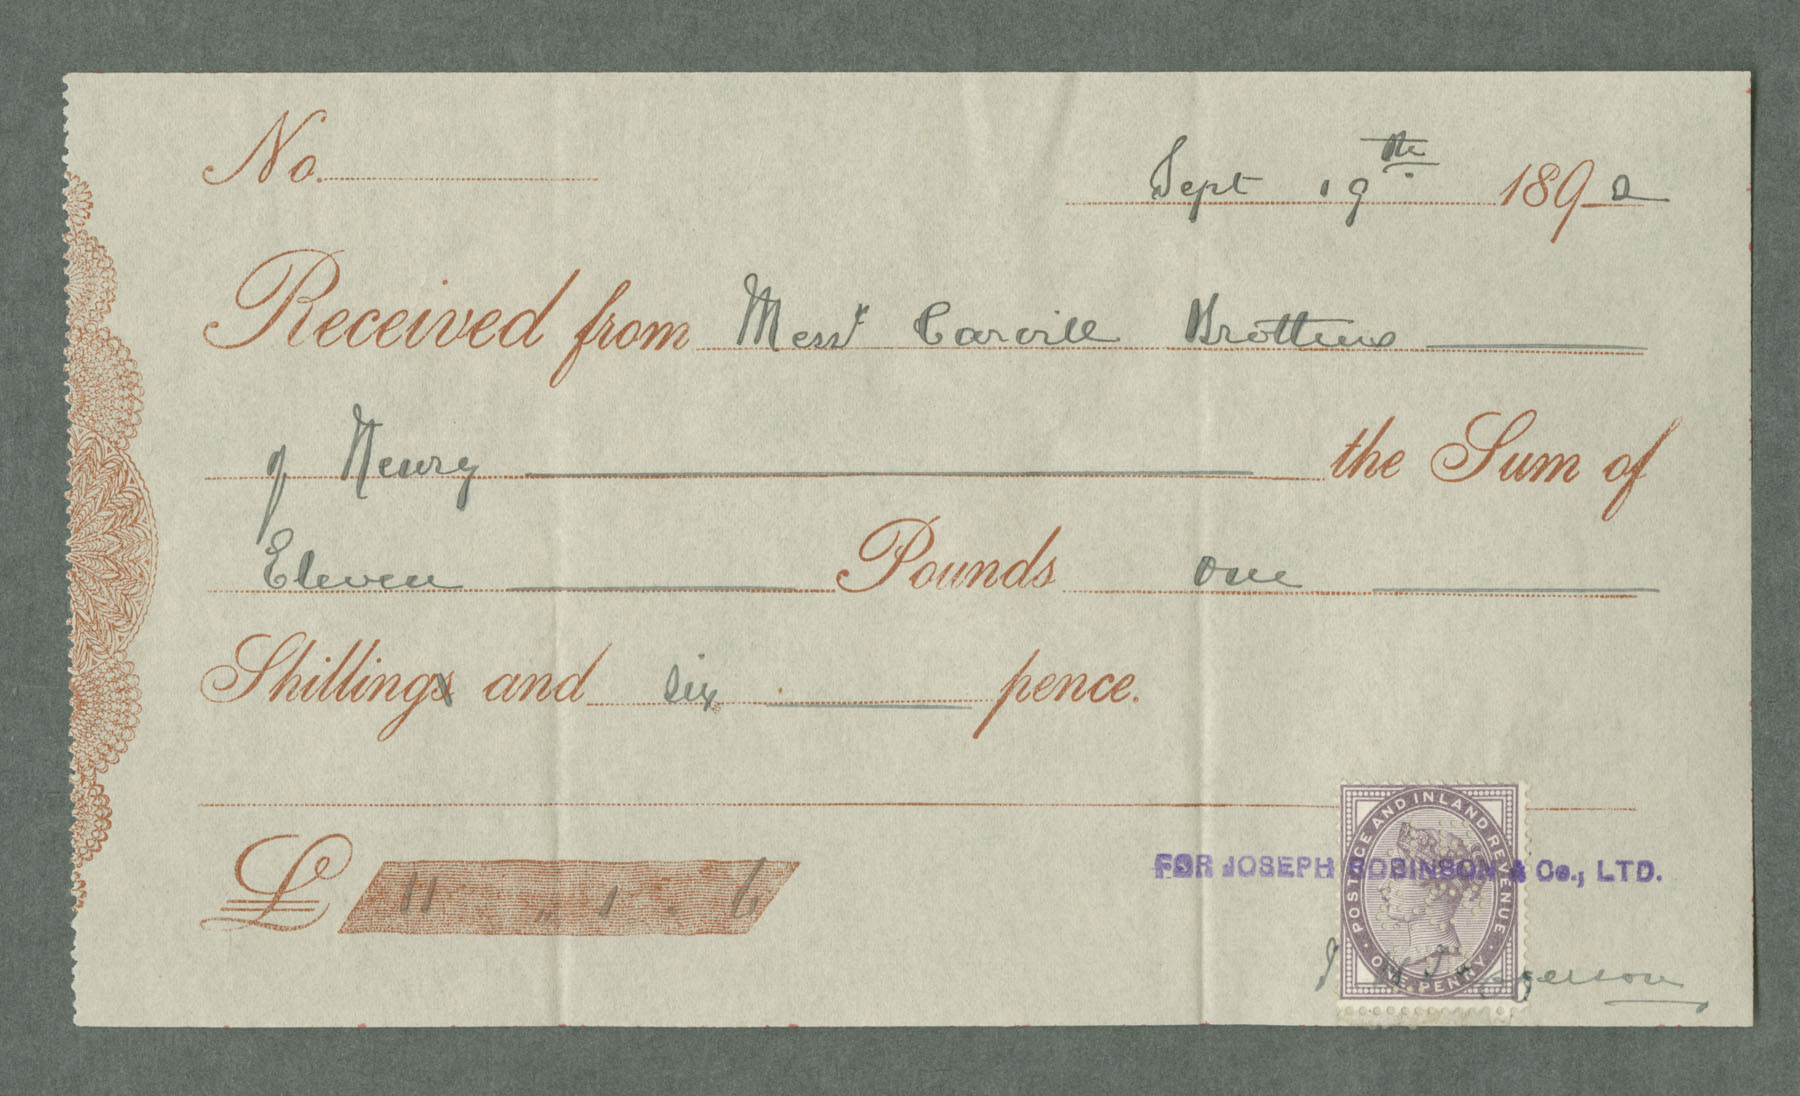 No.
Sept 19th 1892
Received from Messrs Carvill Brothers
of Newry the Sum of
Eleven Pounds one
Shilling and six pence.
£ 11 " 1 - 6
FOR JOSEPH ROBINSON & Co., LTD.
POSTAGE AND INLAND REVENUE
ONE PENNY